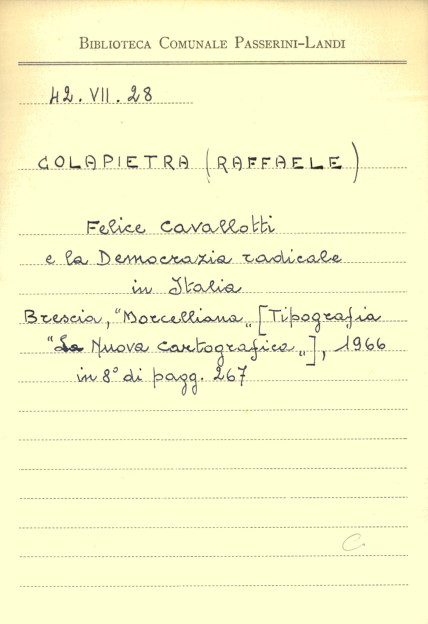 BIBLIOTECA COMUNALE PASSERINI-LANDI
42. VII. 28
COLAPIETRA (RAFFAELE)
Felice Cavallotti
e la Democrazia radicale
in Italia
Brescia, "Morcelliana" [Tipografia
"La Nuova Cartografica"], 1966
in 8° di pagg. 267
C.